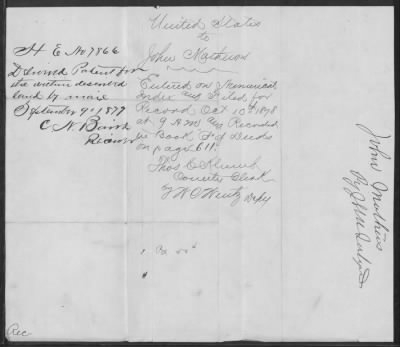 H E No 7866
Delivered Patent for
the within described
land by mail
September 9 1879
C N
United States
to
John
Entered on Numerical
Index and Filed for
Record Oct 10th 1878
at 9 A.M. and Recorded
in Book F of Deeds
on page 611
Thos C
County Clerk
Depy
Rec
John Mathews
By